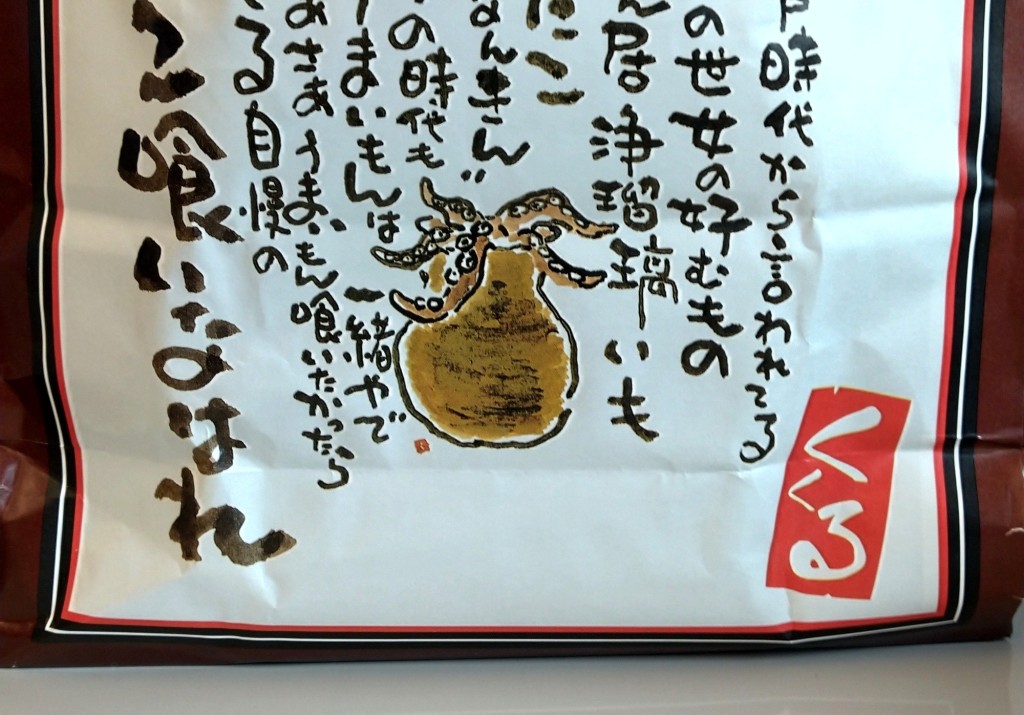 戸時代から言われてる
の世女の好むもの
ん居浄瑠璃いも
たこ
なんきん
の時代も
うまいもんは
一緒やで
さあさあうまいもん喰いたかったら
くる自慢の
コ喰いなはれ
くくる